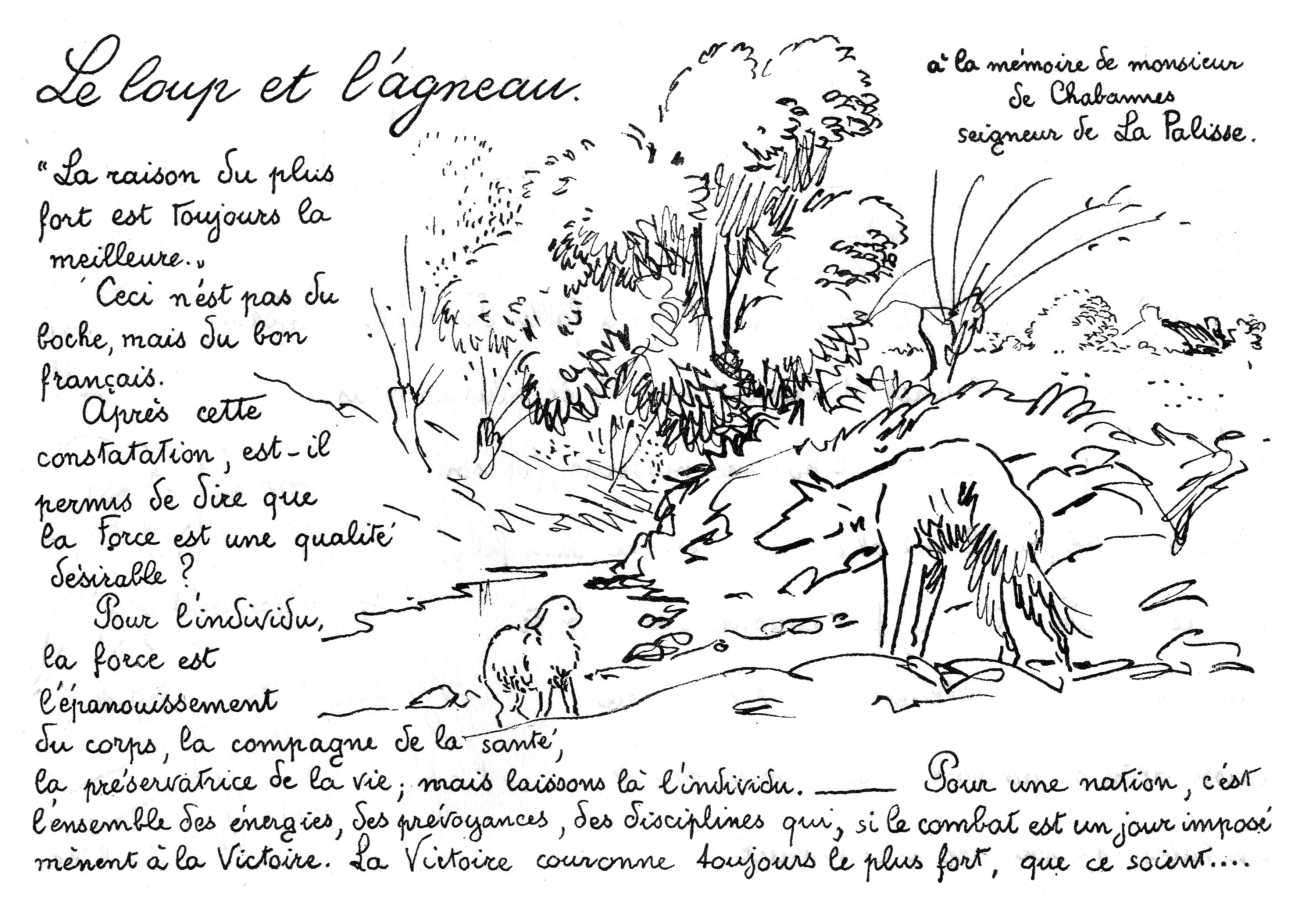 Le loup et l'agneau.
à la mémoire de monsieur
de Chabannes
seigneur de La Palisse.
"La raison du plus
fort est toujours la
meilleure.„
Ceci n'est pas du
boche, mais du bon
français.
Après cette
constatation, est-il
permis de dire que
la Force est une qualité
désirable ?
Pour l'individu,
la force est
l'épanouissement
du corps, la compagne de la santé,
la préservatrice de la vie; mais laissons là l'individu. ___ Pour une nation, c'est
l'ensemble des énergies, des prévoyances, des disciplines qui, si le combat est un jour imposé
mènent à la Victoire. La Victoire couronne toujours le plus fort, que ce soient....